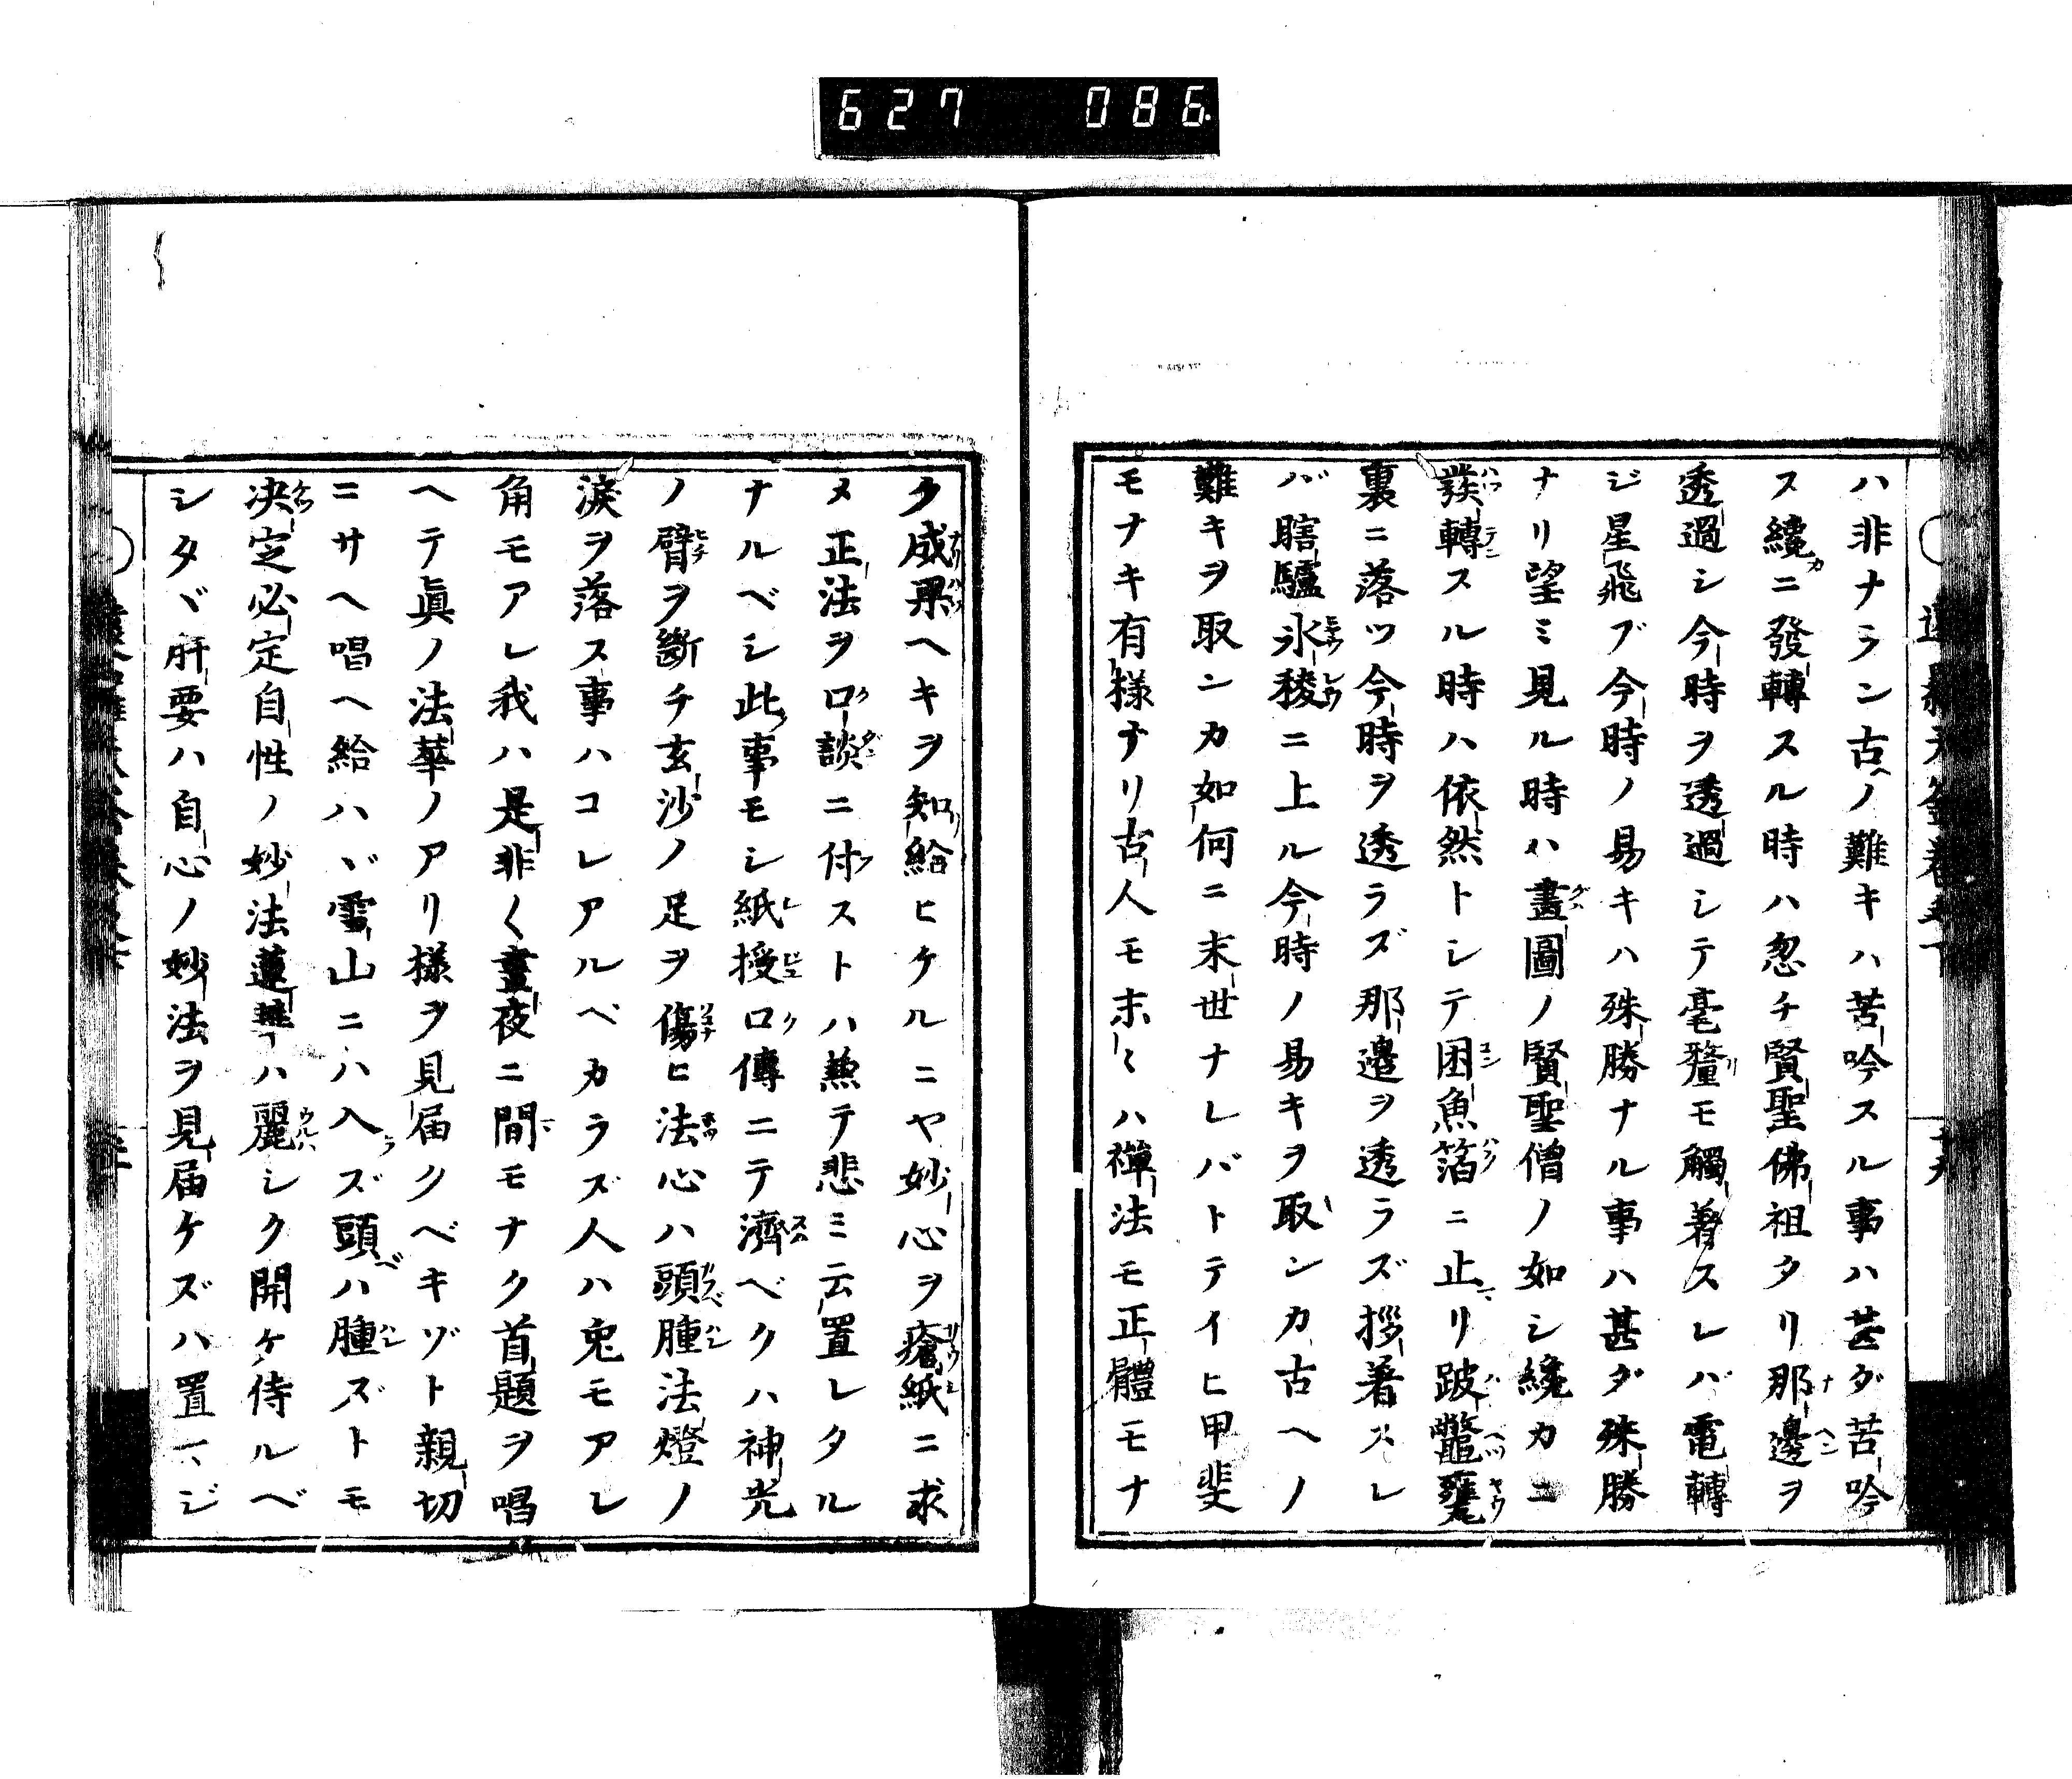 627 086
ハ非ナラン古ヘノ難キハ苦吟スル事ハ甚ダ苦吟
ス纔ニ發轉スル時ハ忽チ賢聖佛祖タリ那邊ヲ
透過シ今時ヲ透過シテ毫釐モ觸着スレバ電轉
ジ星飛ブ今時ノ易キハ殊勝ナル事ハ甚ダ殊勝
ナリ望ミ見ル時ハ畫圖ノ賢聖僧ノ如シ纔カニ
發轉スル時ハ依然トシテ困魚箔ニ止リ跛鼈甕
裏ニ落ツ今時ヲ透ラズ那邊ヲ透ラズ拶着スレ
バ瞎驢氷稜ニ上ル今時ノ易キヲ取ンカ古ヘノ
難キヲ取ンカ如何ニ末世ナレバトテイヒ甲斐
モナキ有樣ナリ古人モ末〻ハ禪法モ正體モナ
ク成果ヘキヲ知給ヒケルニヤ妙心ヲ瘡紙ニ求
メ正法ヲ口談ニ付ストハ兼テ悲ミ云置レタル
ナルベシ此事モシ紙授口傳ニテ濟ベクハ神光
ノ臂ヲ斷チ玄沙ノ足ヲ傷ヒ法心ハ頭腫法燈ノ
淚ヲ落ス事ハコレアルベカラズ人ハ兔モアレ
角モアレ我ハ是非〱晝夜ニ間モナク首題ヲ唱
ヘテ眞ノ法華ノアリ樣ヲ見届クベキゾト親切
ニサヘ唱ヘ給ハヾ雪山ニハ入ズ頭ハ腫ズトモ
決定必定自性ノ妙法蓮華ハ麗シク開ケ侍ルベ
シタヾ肝要ハ自心ノ妙法ヲ見届ケズハ置マジ